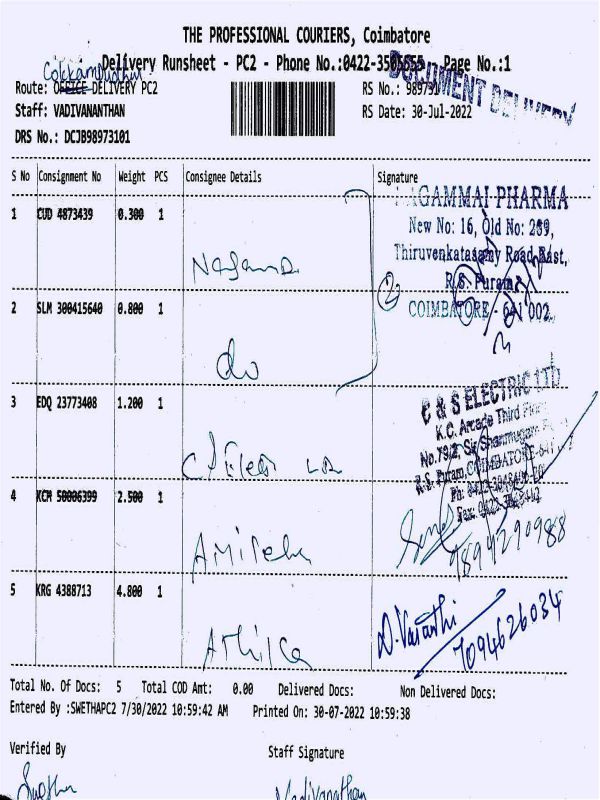 THE PROFESSIONAL COURIERS, Coimbatore
Delivery Runsheet - PC2 - Phone No.:0422-3505655 - Page No.:1
DOCUMENT DELIVERY
Route: OFFICE DELIVERY PC2
RS No.: 989731
Staff: VADIVANANTHAN
RS Date: 30-Jul-2022
DRS No.: DCJB98973101
S No Consignment No Weight PCS Consignee Details Signature
1 CUD 4873439 0.300 1
NAGAMMAI PHARMA
New No: 16, Old No: 289,
Thiruvenkatasamy Road East,
R.S. Puram
COIMBATORE - 641 002.
2
2 SLM 300415640 0.800 1
do
3 EDQ 23773408 1.200 1
C & S ELECTRIC LTD
K.C. Arcade Third
No.79/2, Sir Shanmugam
R.S. Puram, COIMBATORE-641
4 KCM 50006399 2.500 1
7894290988
5 KRG 4388713 4.800 1
D. Vasanthi
7094626034
Total No. Of Docs: 5 Total COD Amt: 0.00 Delivered Docs: Non Delivered Docs:
Entered By :SWETHAPC2 7/30/2022 10:59:42 AM Printed On: 30-07-2022 10:59:38
Verified By Staff Signature
Swetha Vadivanathan